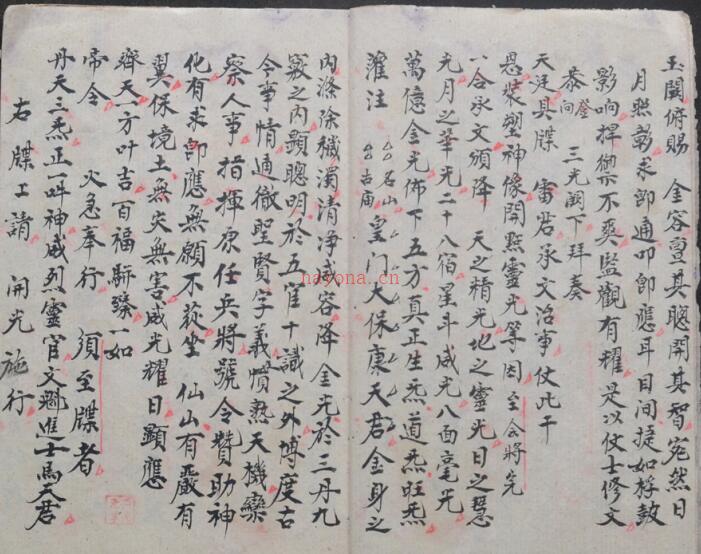 玉闕俯賜　金容亶其聰開其智宛然日
月照勅求即通叩即應耳目間捷如桴鼓
影响捍禦不爽監觀有耀是以仗士修文
恭向登　三光闕下拜奏
天廷具牒　雷君承文洽事仗此干
恩裝塑神像開點靈光等因至会將先
八合承文頒降　天之精光地之靈光日之慧
光月之華光二十八宿星斗咸光八面毫光
萬億金光佈下五方真正生炁道炁旺炁
灌注　厶厶名山厶厶古庙　皇门大保康天君金身之
内滌除穢濁清淨威容降金光於三丹九
竅之内顯聰明於五官十識之外博度古
今事情通徹聖賢字義慣熟天機鑒
察人事指揮原任兵將號令贊助神
化有求即應無願不荻坐　仙山有嚴有
翼保境土無灾無害威光耀日顯應
齊天一方叶吉百福駢臻一如
帝令　火急奉行　須至牒者
丹天三炁正一吽神威烈靈官文魁進士馬天君
右牒上請　開光施行
nayona.cn